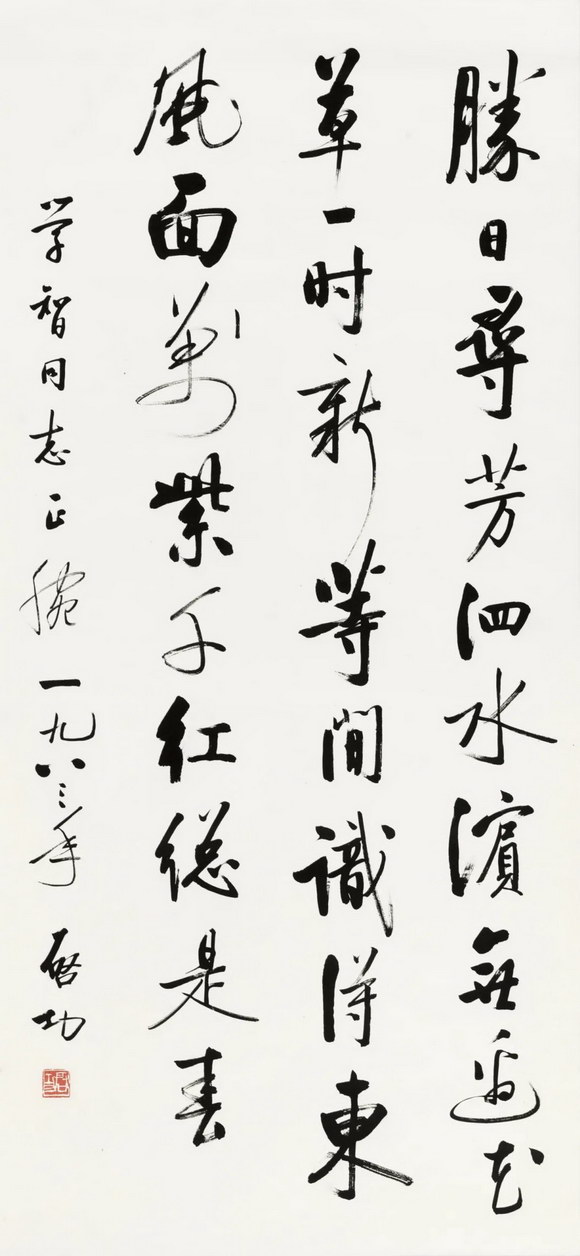 勝日尋芳泗水濱無邊花
草一时新等閒識得東
風面萬紫千紅總是春
学智同志正腕 一九八三年 啓功